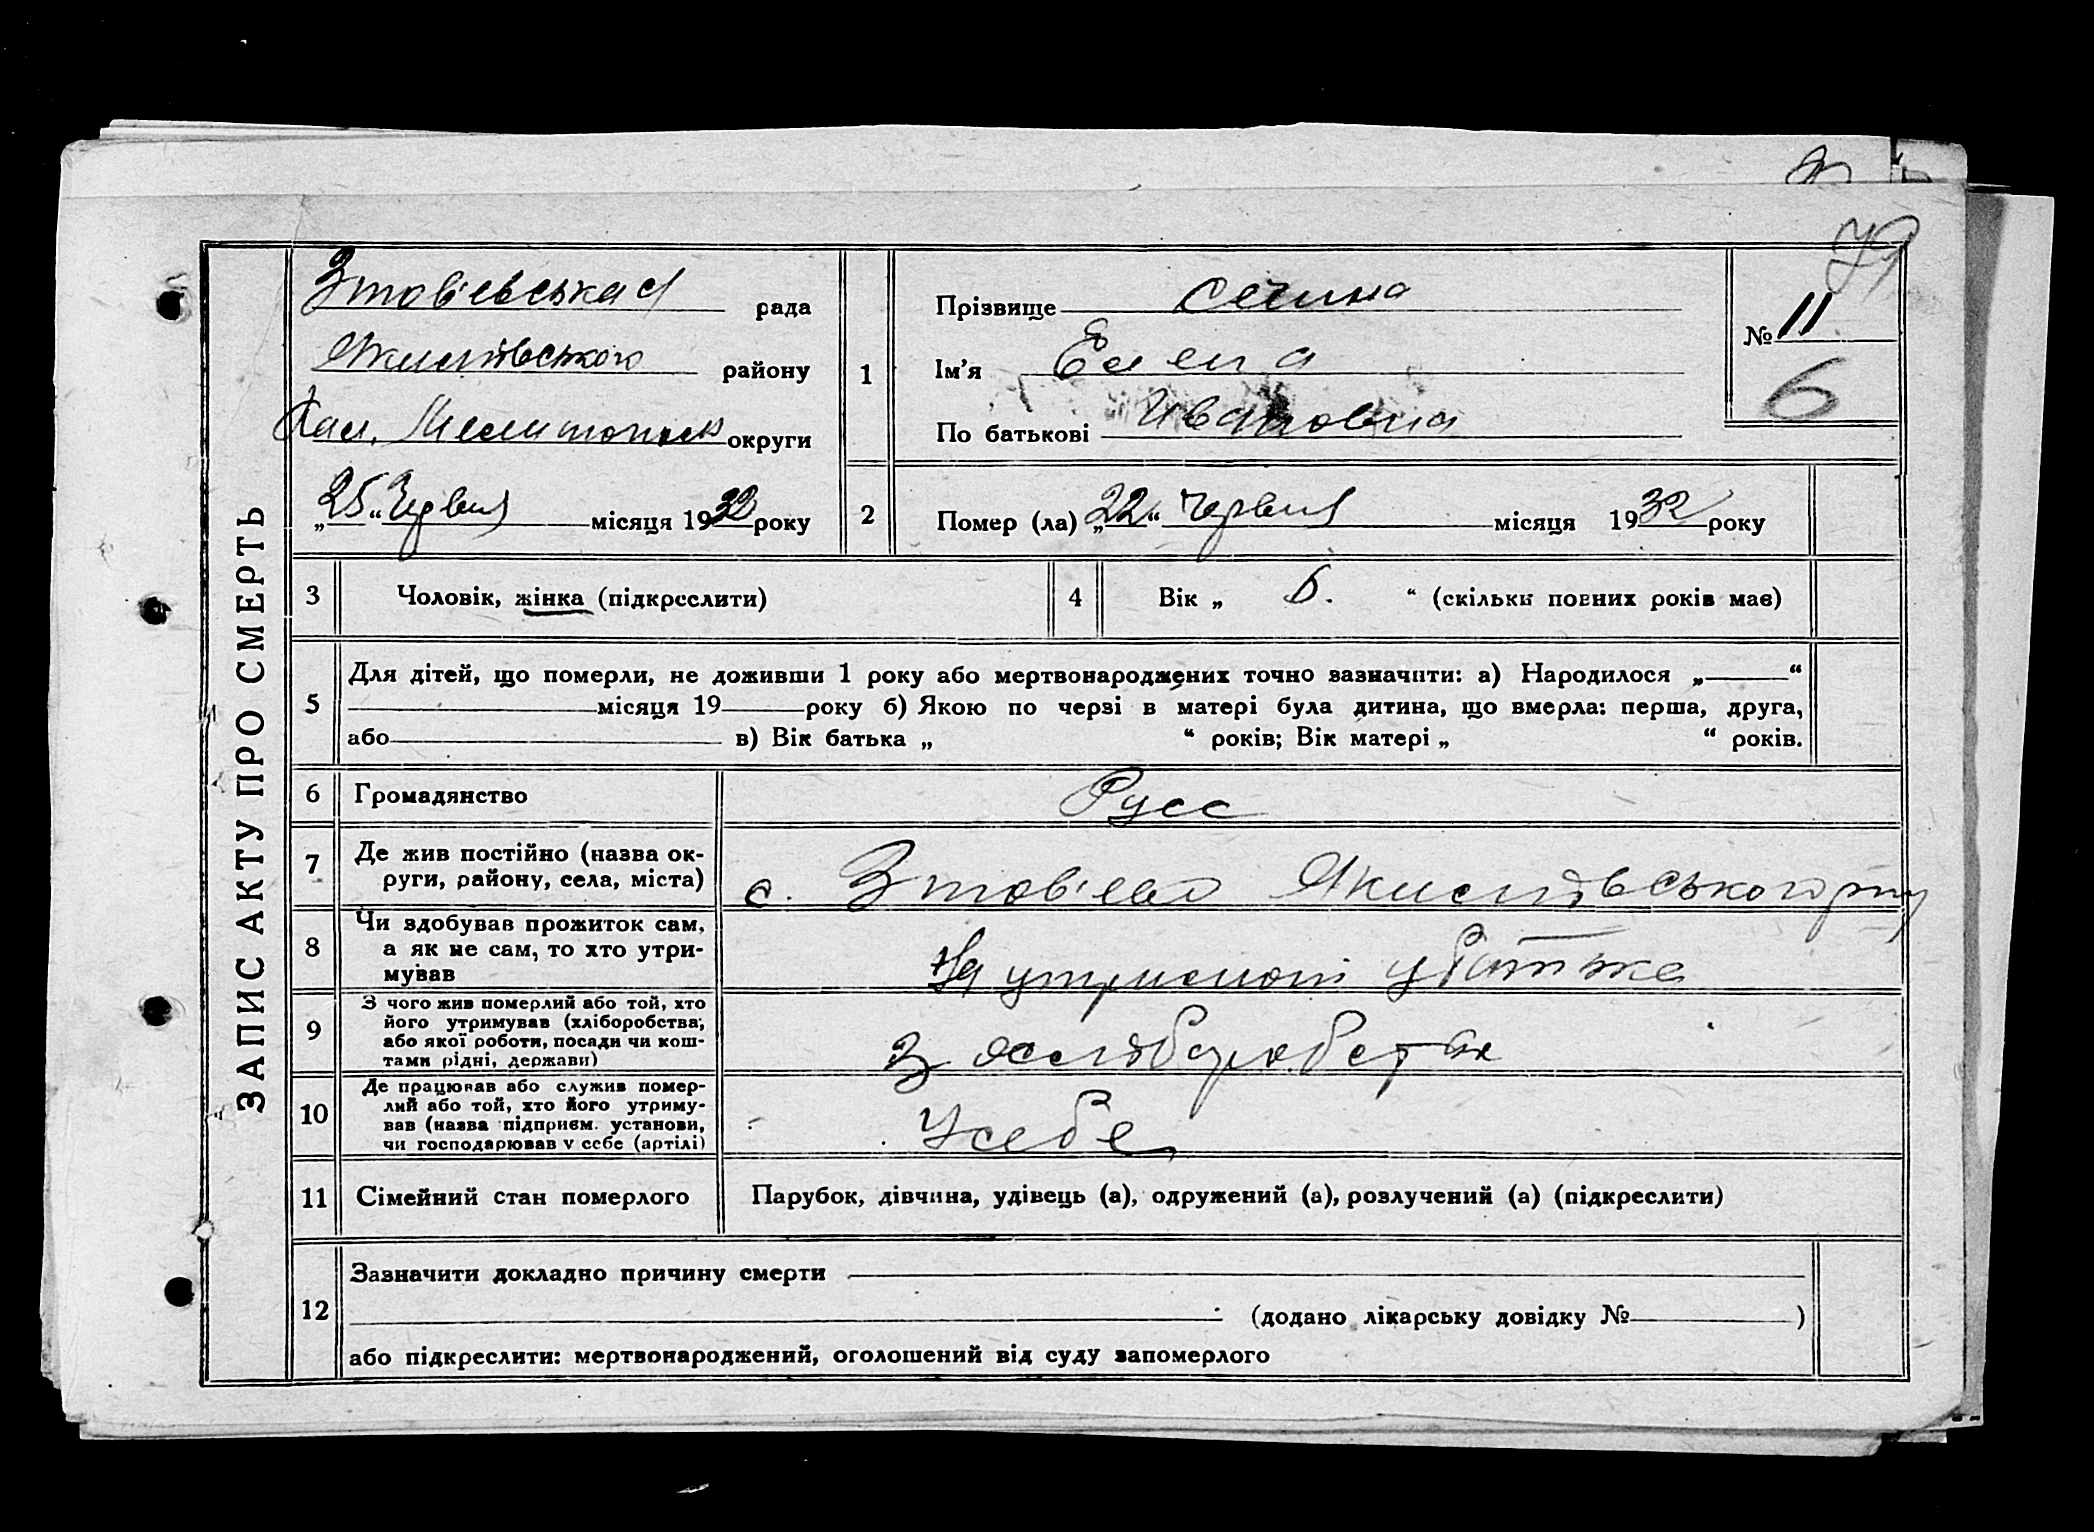 79
Зтовʼевська с/ рада
Якимівського району
Кам. Мелитопольськ округи
„25“ Червня місяця 1932 року
ЗАПИС АКТУ ПРО СМЕРТЬ
1
Прізвище Сечина
Ім'я Елена
По батькові Ивановна
№ 11
6
2
Помер (ла) „22“ червня місяця 1932 року
3 Чоловік, жінка (підкреслити)
4 Вік „ 5. “ (скільки повних років має)
5 Для дітей, що померли, не доживши 1 року або мертвонароджених точно зазначити: а) Народилося „ “
місяця 19 року б) Якою по черзі в матері була дитина, що вмерла: перша, друга,
або в) Вік батька „ “ років; Вік матері „ “ років.
6 Громадянство Русс
7 Де жив постійно (назва ок-
руги, району, села, міста) с. Зтовʼево Якимівського р-ну
8 Чи здобував прожиток сам,
а як не сам, то хто утри-
мував На утриманні у батька
9 З чого жив померлий або той, хто
його утримував (хліборобства,
або якої роботи, посади чи кош-
тами рідні, держави) З хліборобства
10 Де працював або служив помер-
лий або той, хто його утриму-
вав (назва підприєм. установи,
чи господарював у себе (артілі) У себе
11 Сімейний стан померлого Парубок, дівчина, удівець (а), одружений (а), розлучений (а) (підкреслити)
12 Зазначити докладно причину смерти
(додано лікарську довідку № )
або підкреслити: мертвонароджений, оголошений від суду запомерлого